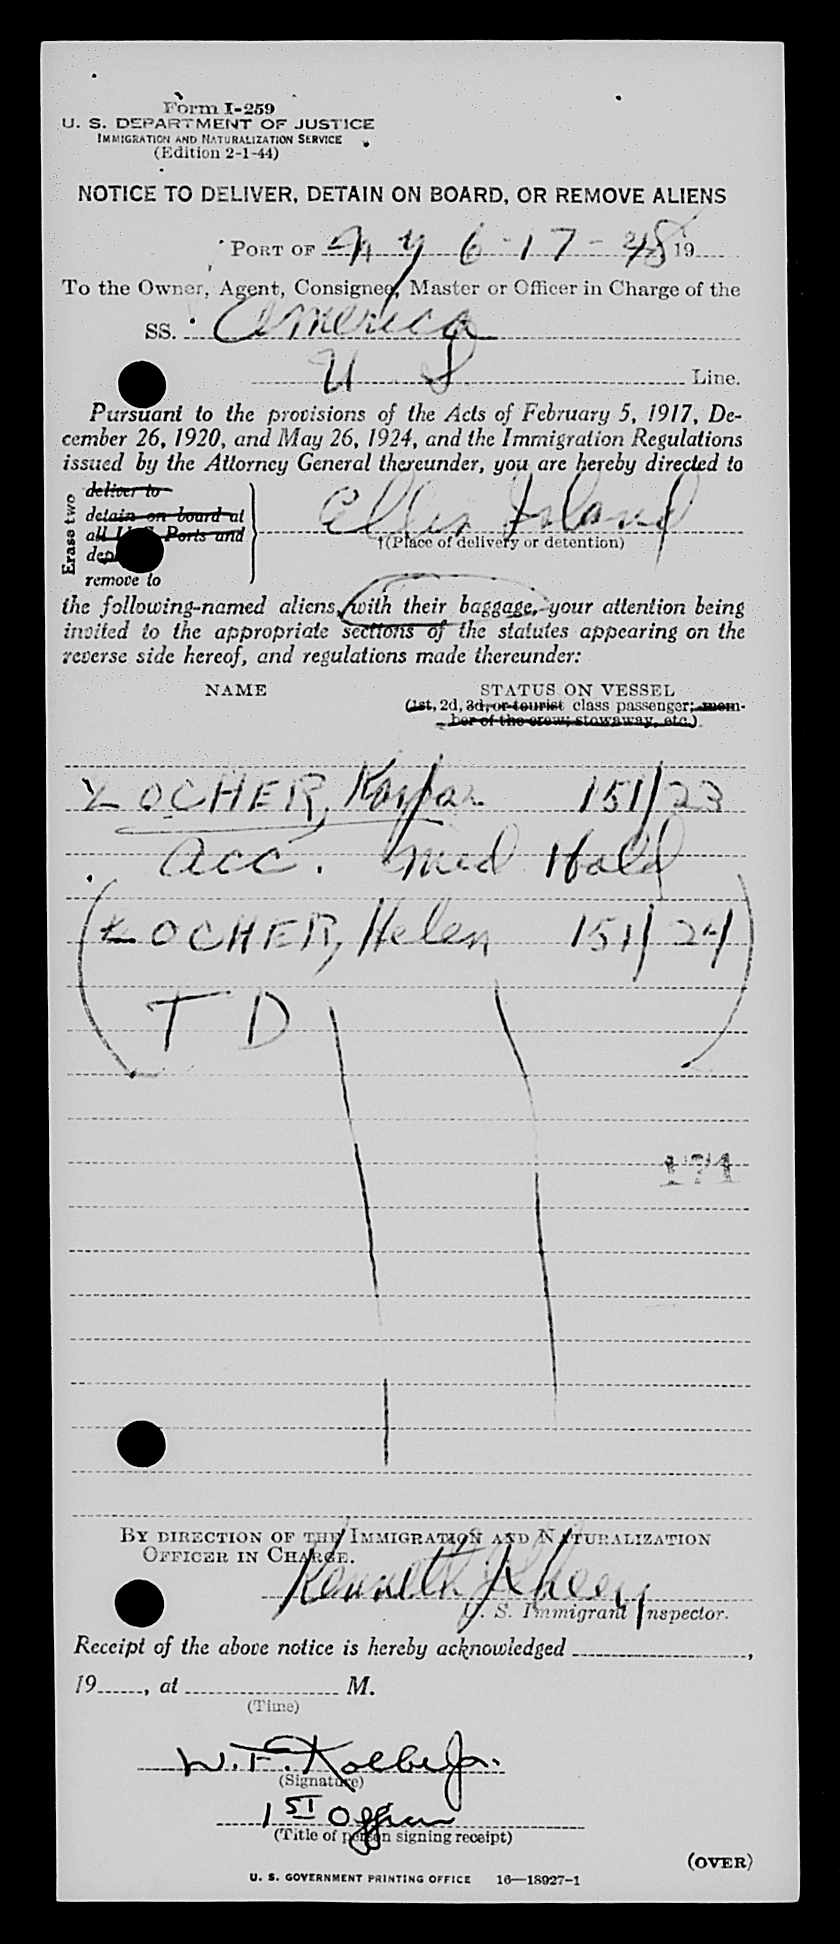 Form I-259
U. S. DEPARTMENT OF JUSTICE
IMMIGRATION AND NATURALIZATION SERVICE
(Edition 2-1-44)
NOTICE TO DELIVER, DETAIN ON BOARD, OR REMOVE ALIENS
PORT OF NY 6-17-48 19
To the Owner, Agent, Consignee, Master or Officer in Charge of the
SS. America
U S Line.
Pursuant to the provisions of the Acts of February 5, 1917, De-
cember 26, 1920, and May 26, 1924, and the Immigration Regulations
issued by the Attorney General thereunder, you are hereby directed to
Erase two
deliver to
detain on board at
all U.S. Ports and
remove to
Ellis Island
†(Place of delivery or detention)
the following-named aliens, with their baggage, your attention being
invited to the appropriate sections of the statutes appearing on the
reverse side hereof, and regulations made thereunder:
NAME STATUS ON VESSEL
(1st, 2d, 3d, or tourist class passenger; mem-
ber of the crew; stowaway, etc.)
LOCHER, Kaspar 151/23
acc. Med Hold
(LOCHER, Helen 151/24)
T D
171
BY DIRECTION OF THE IMMIGRATION AND NATURALIZATION
OFFICER IN CHARGE.
Kenneth
U. S. Immigrant Inspector.
Receipt of the above notice is hereby acknowledged ,
19 , at M.
(Time)
W. F. Kolbe Jr.
(Signature)
1ST Officer
(Title of person signing receipt)
(OVER)
U. S. GOVERNMENT PRINTING OFFICE 16—18927-1